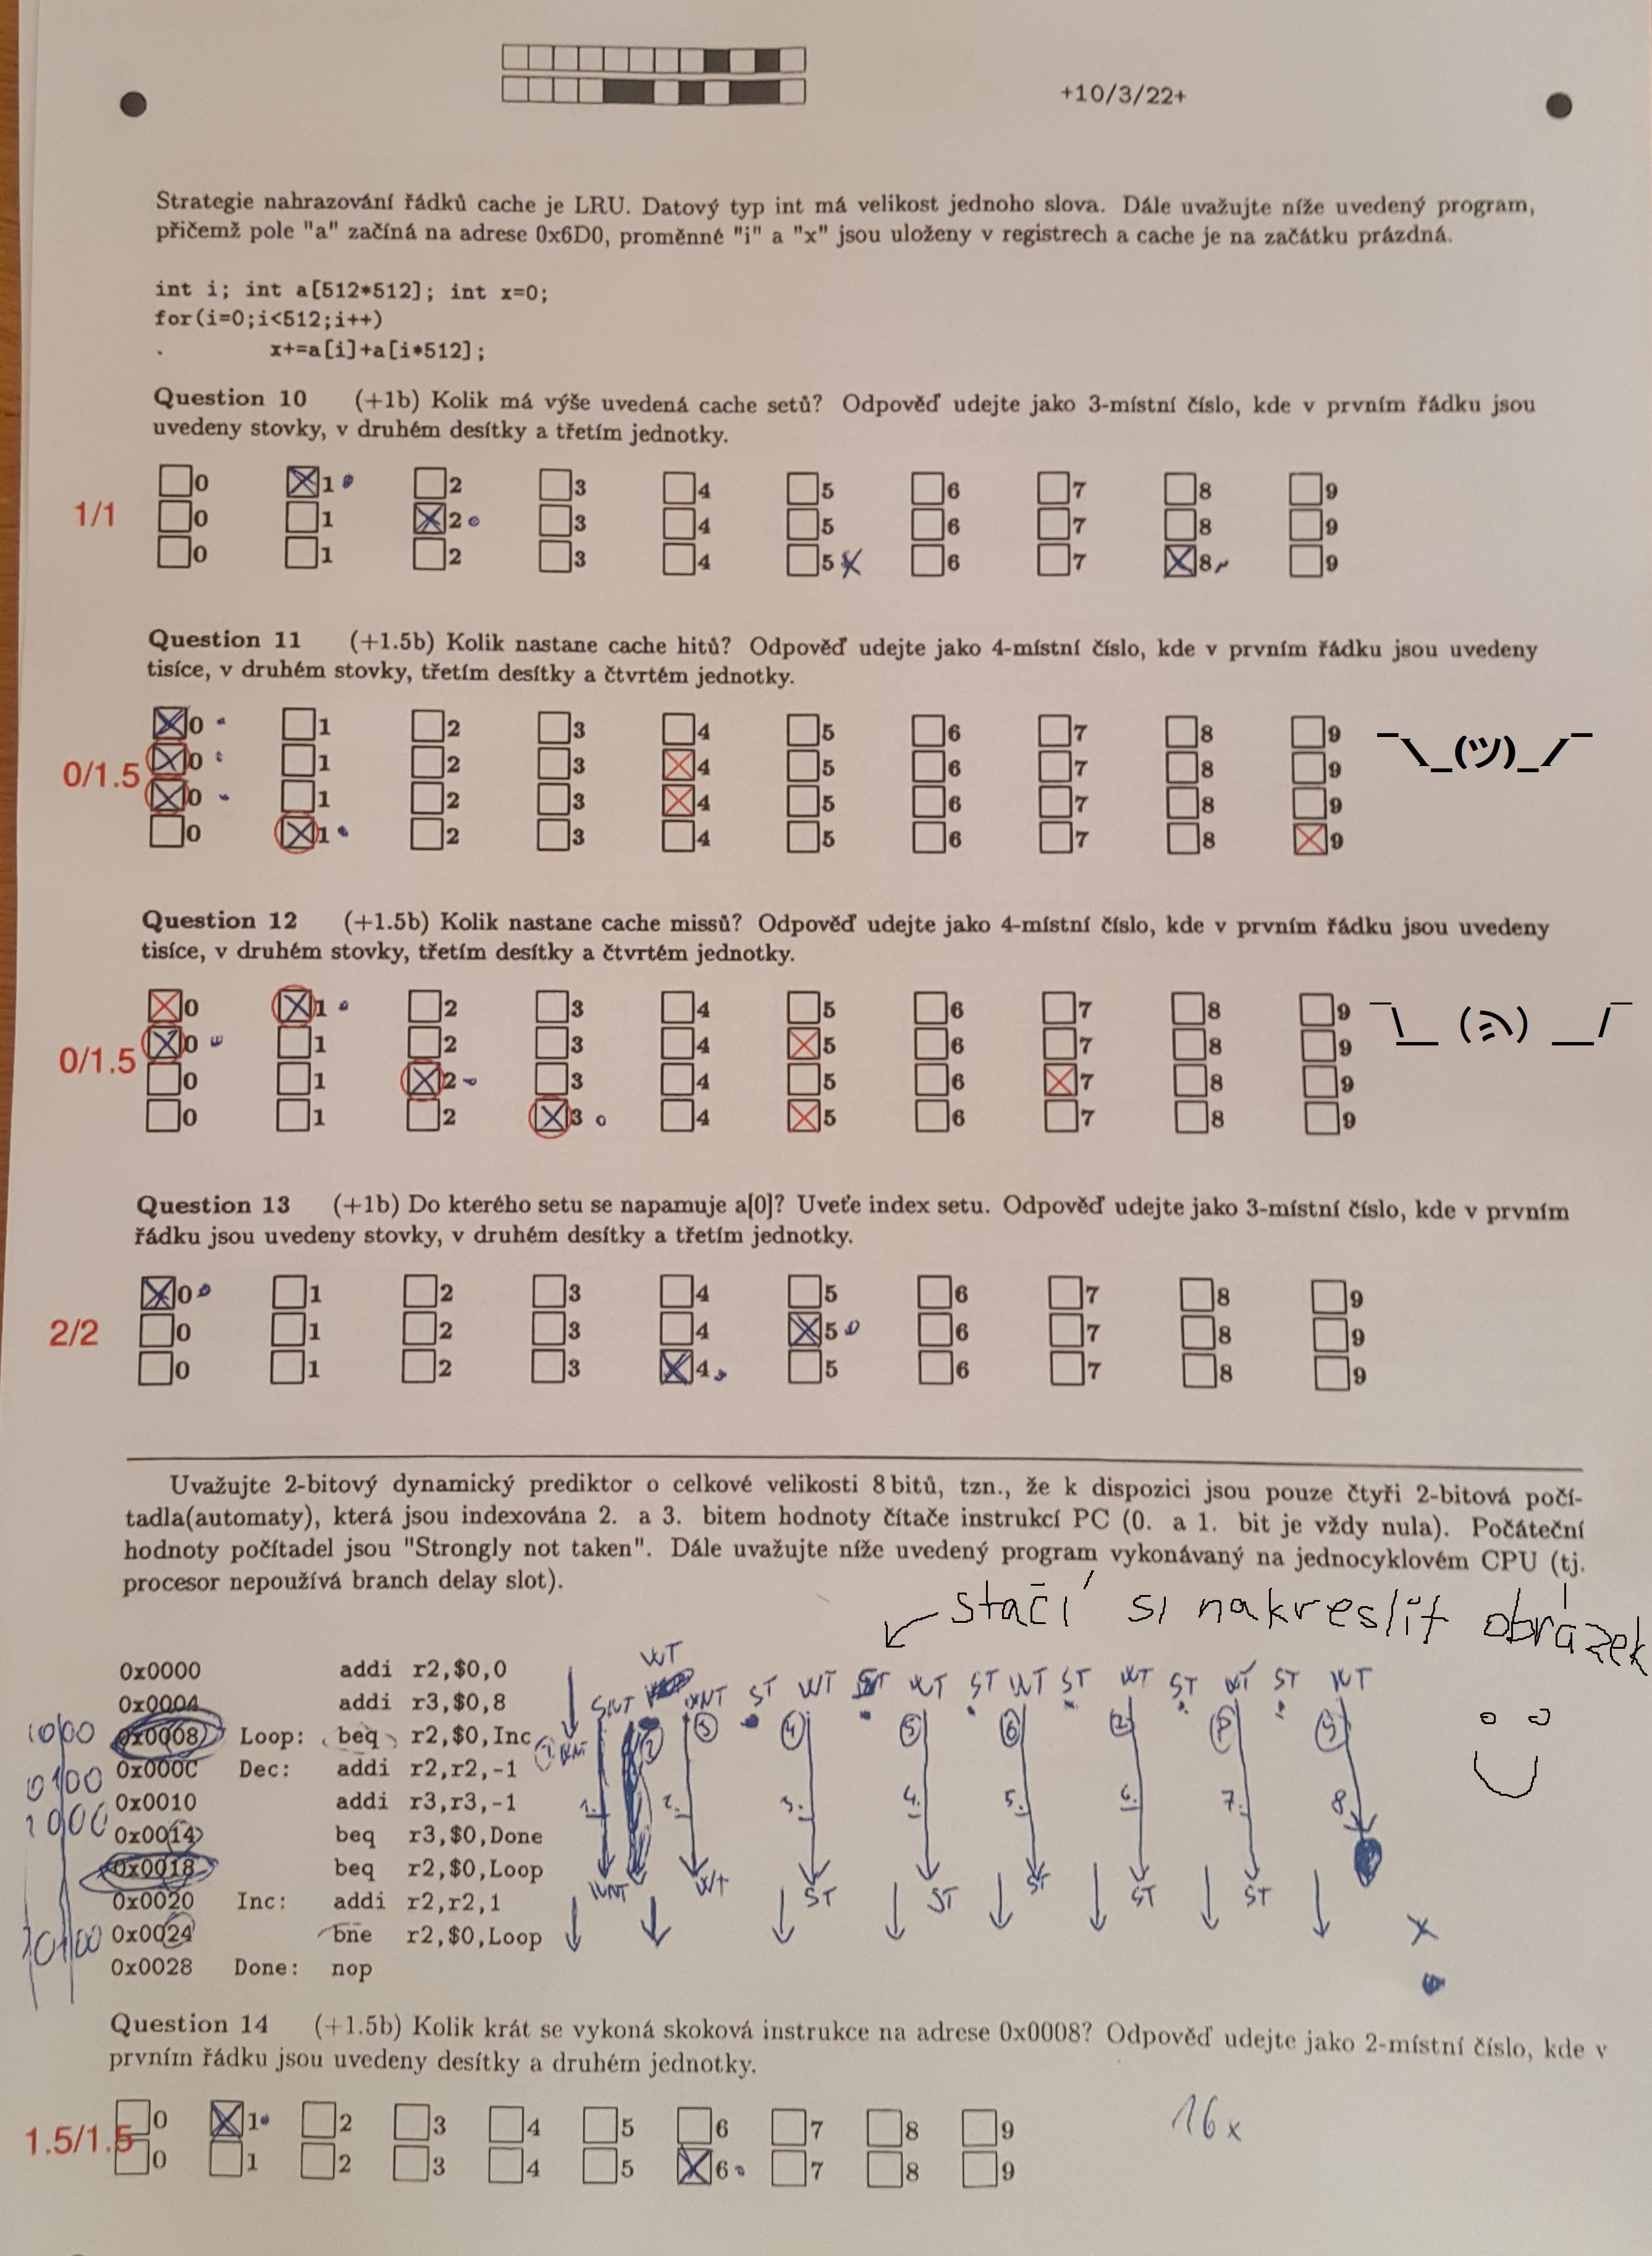 +10/3/22+
Strategie nahrazování řádků cache je LRU. Datový typ int má velikost jednoho slova. Dále uvažujte níže uvedený program,
přičemž pole "a" začíná na adrese 0x6D0, proměnné "i" a "x" jsou uloženy v registrech a cache je na začátku prázdná.
int i; int a[512*512]; int x=0;
for(i=0;i<512;i++)
. x+=a[i]+a[i*512];
Question 10 (+1b) Kolik má výše uvedená cache setů? Odpověď udejte jako 3-místní číslo, kde v prvním řádku jsou
uvedeny stovky, v druhém desítky a třetím jednotky.
0 1 2 3 4 5 6 7 8 9
1/1 0 1 2 3 4 5 6 7 8 9
0 1 2 3 4 5 6 7 8 9
Question 11 (+1.5b) Kolik nastane cache hitů? Odpověď udejte jako 4-místní číslo, kde v prvním řádku jsou uvedeny
tisíce, v druhém stovky, třetím desítky a čtvrtém jednotky.
0 1 2 3 4 5 6 7 8 9 ¯\_(ツ)_/¯
0/1.5 0 1 2 3 4 5 6 7 8 9
0 1 2 3 4 5 6 7 8 9
0 1 2 3 4 5 6 7 8 9
Question 12 (+1.5b) Kolik nastane cache missů? Odpověď udejte jako 4-místní číslo, kde v prvním řádku jsou uvedeny
tisíce, v druhém stovky, třetím desítky a čtvrtém jednotky.
0 1 2 3 4 5 6 7 8 9
0/1.5 0 1 2 3 4 5 6 7 8 9
0 1 2 3 4 5 6 7 8 9
0 1 2 3 4 5 6 7 8 9
Question 13 (+1b) Do kterého setu se napamuje a[0]? Uveťe index setu. Odpověď udejte jako 3-místní číslo, kde v prvním
řádku jsou uvedeny stovky, v druhém desítky a třetím jednotky.
0 1 2 3 4 5 6 7 8 9
2/2 0 1 2 3 4 5 6 7 8 9
0 1 2 3 4 5 6 7 8 9
Uvažujte 2-bitový dynamický prediktor o celkové velikosti 8 bitů, tzn., že k dispozici jsou pouze čtyři 2-bitová počí-
tadla(automaty), která jsou indexována 2. a 3. bitem hodnoty čítače instrukcí PC (0. a 1. bit je vždy nula). Počáteční
hodnoty počítadel jsou "Strongly not taken". Dále uvažujte níže uvedený program vykonávaný na jednocyklovém CPU (tj.
procesor nepoužívá branch delay slot).
stačí si nakreslit obrázek
WT
0x0000 addi r2,$0,0
SNT WNT ST WT ST WT ST WT ST WT ST WT ST WT
0x0004 addi r3,$0,8
1000 0x0008 Loop: beq r2,$0,Inc 1 WNT 2 3 4 5 6 7 8 9
0100 0x000C Dec: addi r2,r2,-1
1000 0x0010 addi r3,r3,-1 1. 2. 3. 4. 5. 6. 7. 8.
0x0014 beq r3,$0,Done
0x0018 beq r2,$0,Loop
WNT WT ST ST ST ST ST
0x0020 Inc: addi r2,r2,1
0100 0x0024 bne r2,$0,Loop
0x0028 Done: nop
Question 14 (+1.5b) Kolik krát se vykoná skoková instrukce na adrese 0x0008? Odpověď udejte jako 2-místní číslo, kde v
prvním řádku jsou uvedeny desítky a druhém jednotky.
0 1 2 3 4 5 6 7 8 9 16x
1.5/1.5 0 1 2 3 4 5 6 7 8 9